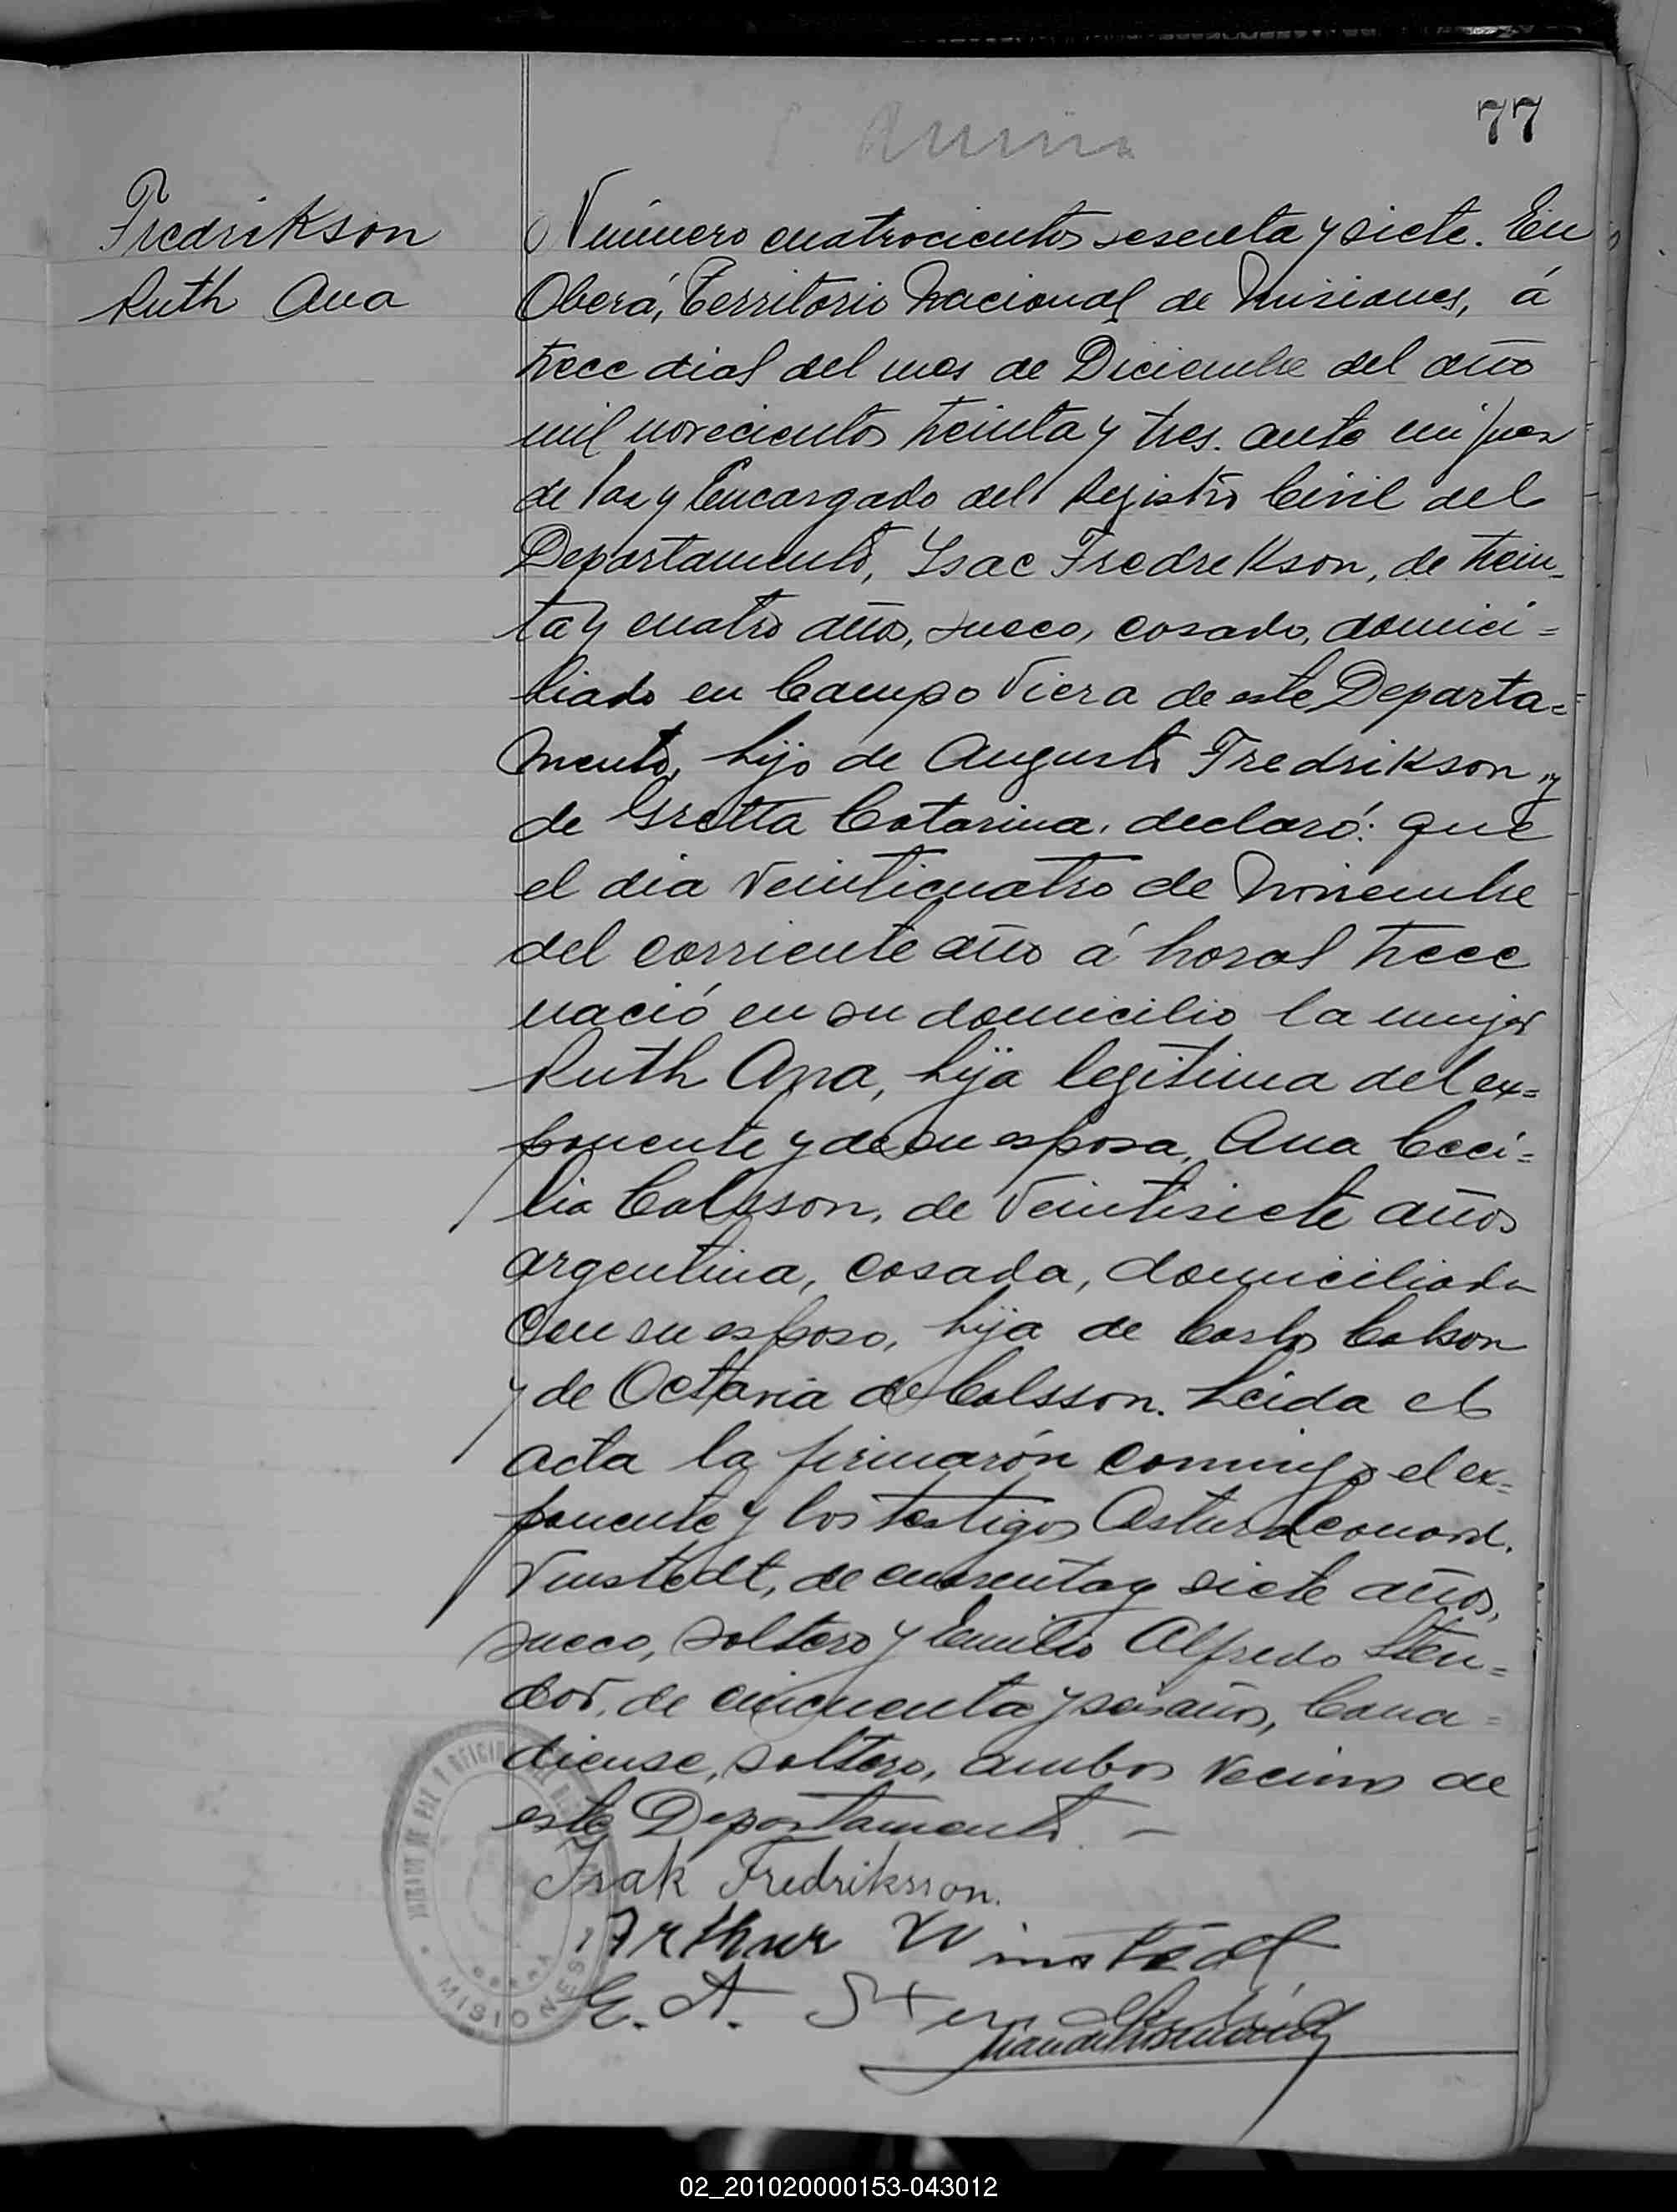 77
Fredrikson
Ruth Ana
Número cuatrocientos sesenta y siete. En
Oberá, Territorio Nacional de Misiones, á
trece dias del mes de Diciembre del año
mil novecientos treinta y tres. ante mi juez
de Paz y Encargado del Registro Civil del
Departamento, Ysac Fredrekson, de trein-
ta y cuatro años, sueco, casado, domici=
liado en Campo Viera de este Departa=
mento, hijo de Augusto Fredrikson y
de Gretta Catarina, declaró: que
el dia veinticuatro de Noviembre
del corriente año á horas trece
nació en su domicilio la mujer
Ruth Ana, hija legitima del ex=
ponente y de su esposa, Ana Ceci=
lia Calsson, de veintisiete años
argentina, casada, domiciliada
con su esposo, hija de Carlos Calson
y de Octavia de Calsson. Leida el
acta la firmarón conmigo el ex=
ponente y los testigos Astur Leonard.
Vinstedt, de cuarenta y siete años,
sueco, soltero y Emilio Alfredo Sten=
dor, de cincuenta y seis años, Cana=
diense, soltero, ambos vecinos de
este Departamento —
Isak Fredriksson.
Arthur Winstedt
E. A. Sten
JUZGADO DE PAZ Y OFICINA DEL
OBERA
MISIONES
02_201020000153-043012